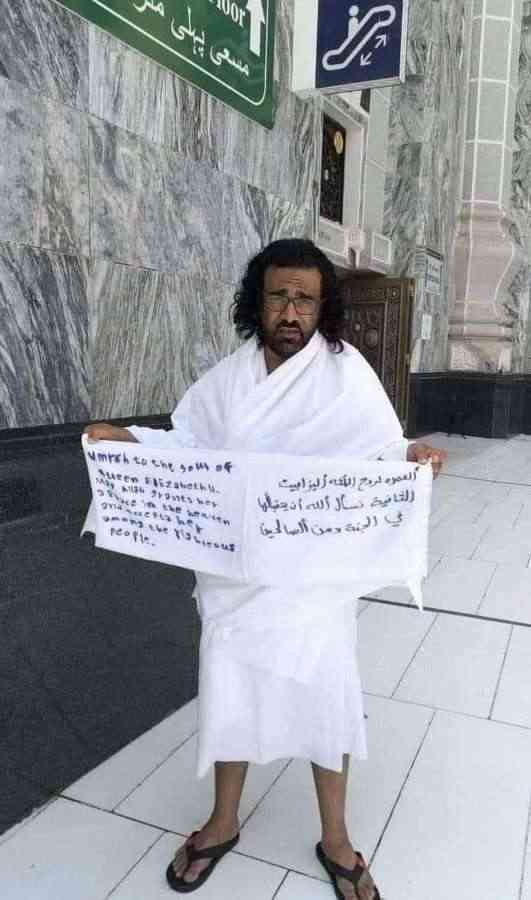 Floor
مسعى پہلی منزل
umrah to the soul of
Queen Elizabeth II.
May Allah grants her
a place in the heaven
and accepts her
among the righteous
people.
العمره لروح الملكه أليزابيث
الثانية نسأل الله ان يتقبلها
في الجنة ومن الصالحين